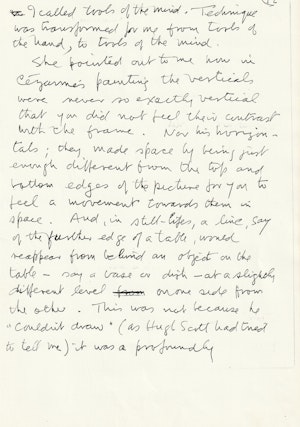 I called tools of the mind. Technique
was transformed for me from tools of
the hand, to tools of the mind.
She pointed out to me how in
Cézanne's painting the verticals
were never so exactly vertical
that you did not feel their contrast
with the frame. Nor his horizon-
tals; they made space by being just
enough different from the top and
bottom edges of the picture for you to
feel a movement towards them in
space. And, in still-lifes, a line, say
of the further edge of a table, would
reappear from behind an object on the
table - say a vase or dish - at a slightly
different level from on one side from
the other. This was not because he
"couldn't draw" (as Hugh Scott had tried
to tell me) it was a profoundly